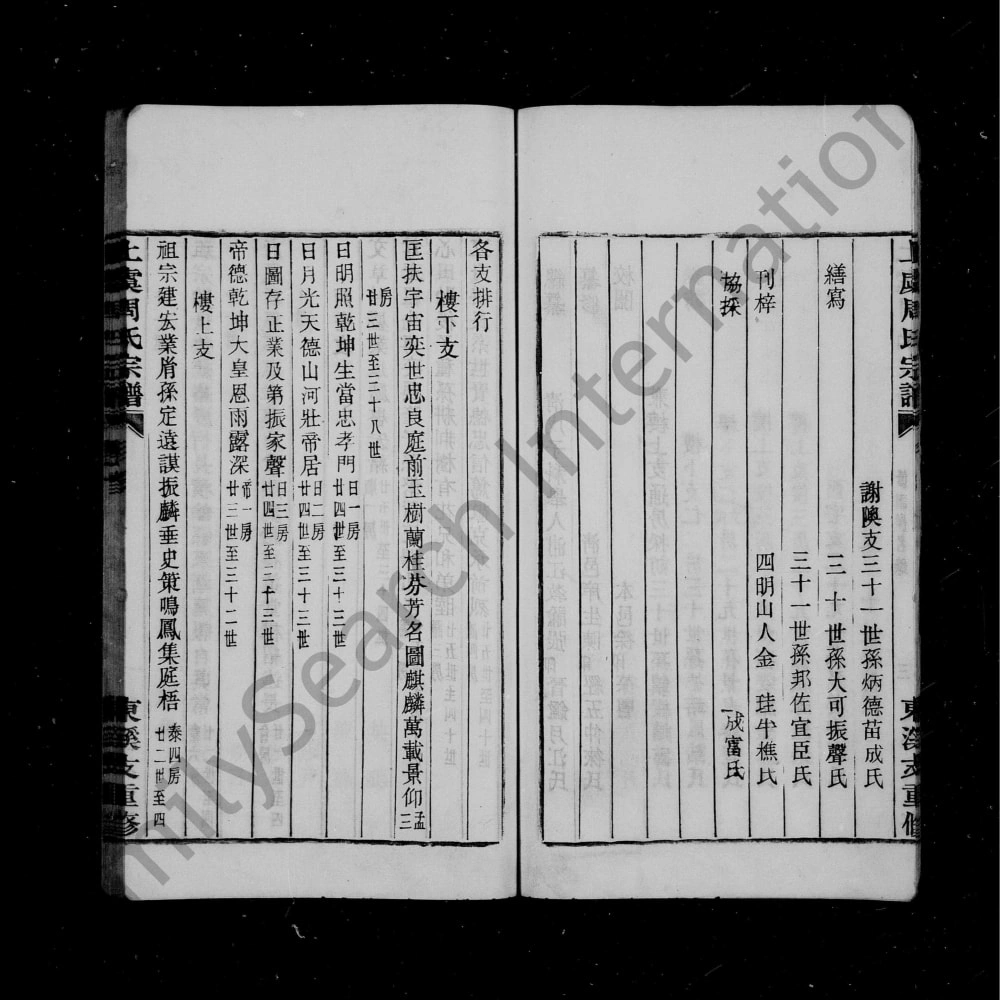 上虞周氏宗譜
東溪支重修
謝隩支三十一世孫炳德苗成氏
繕寫
三十一世孫大可振聲氏
三十一世孫邦佐宜臣氏
刊梓
四明山人金 珪半樵氏
協採
一成富氏
各支排行
樓下支
匡扶宇宙奕世忠良庭前玉樹蘭桂芬芳名圖麒麟萬載景仰孟三
房廿三世至三十八世
日明照乾坤生當忠孝門日一房廿四世至三十三世
日月光天德山河壯帝居日二房廿四世至三十三世
日圖存正業及第振家聲日三房廿四世至三十三世
帝德乾坤大皇恩雨露深帝一房廿三世至三十二世
樓上支
祖宗建宏業肯孫定遠謨振麟垂史策鳴鳳集庭梧泰四房廿二世至四
上虞周氏宗譜
東溪支重修
FamilySearch International